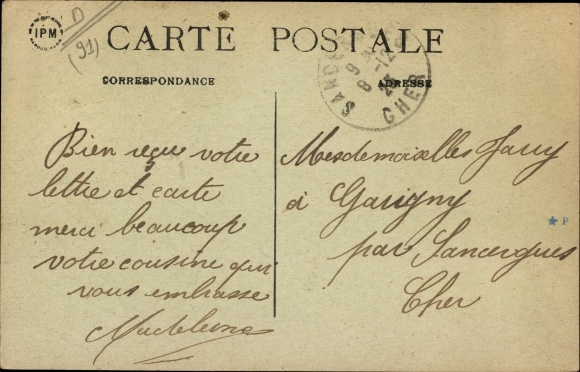 IPM
D
(91)
CARTE POSTALE
CORRESPONDANCE
ADRESSE
CHER
Bien reçu votre
lettre et carte
merci beaucoup
votre cousine qui
vous embrasse
Madeleine
Mesdemoiselles Jauy
à Garigny
par Sancergues
Cher
P